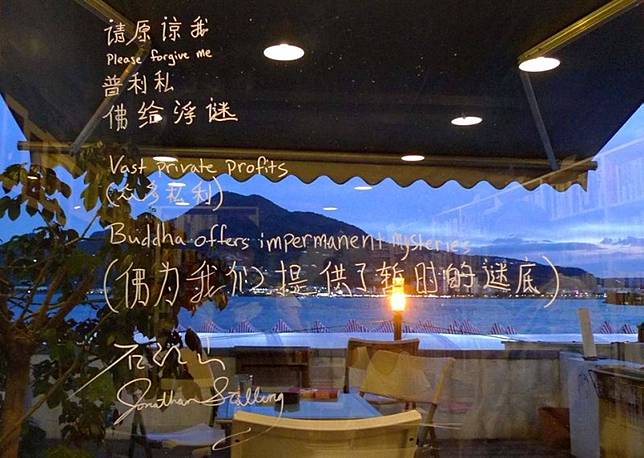 请原谅我
Please forgive me
普利私
佛给浮谜
Vast private profits
(众多私利)
Buddha offers impermanent mysteries
(佛为我们提供了暂时的谜底)
石江山
Jonathan Stalling